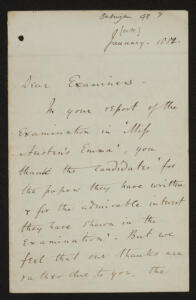 January. 1882
Dear Examiner
In your report of the
Examination in "Miss
Austen's Emma", you
thank the "candidates" for
the papers they have written
& for the admirable interest
they have shown in the
Examination". But we
feel that our thanks are
rather due to you. the